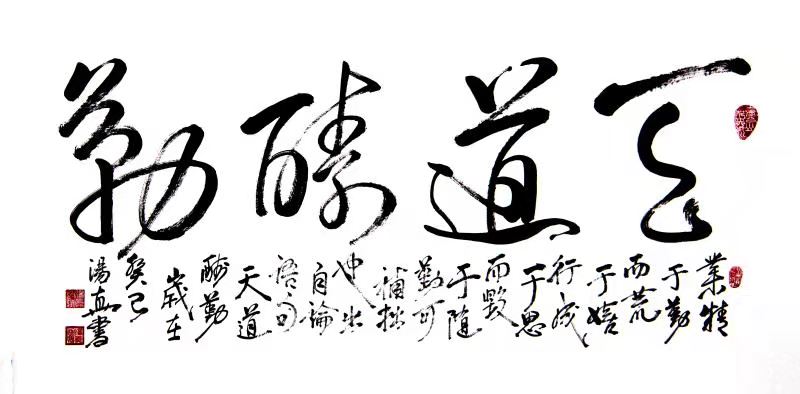 天道酬勤
業精
于勤
而荒
于嬉
行成
于思
而毀
于随
勤可
補拙
出
自論
語
天道
酬勤
歲在
癸巳
湯書